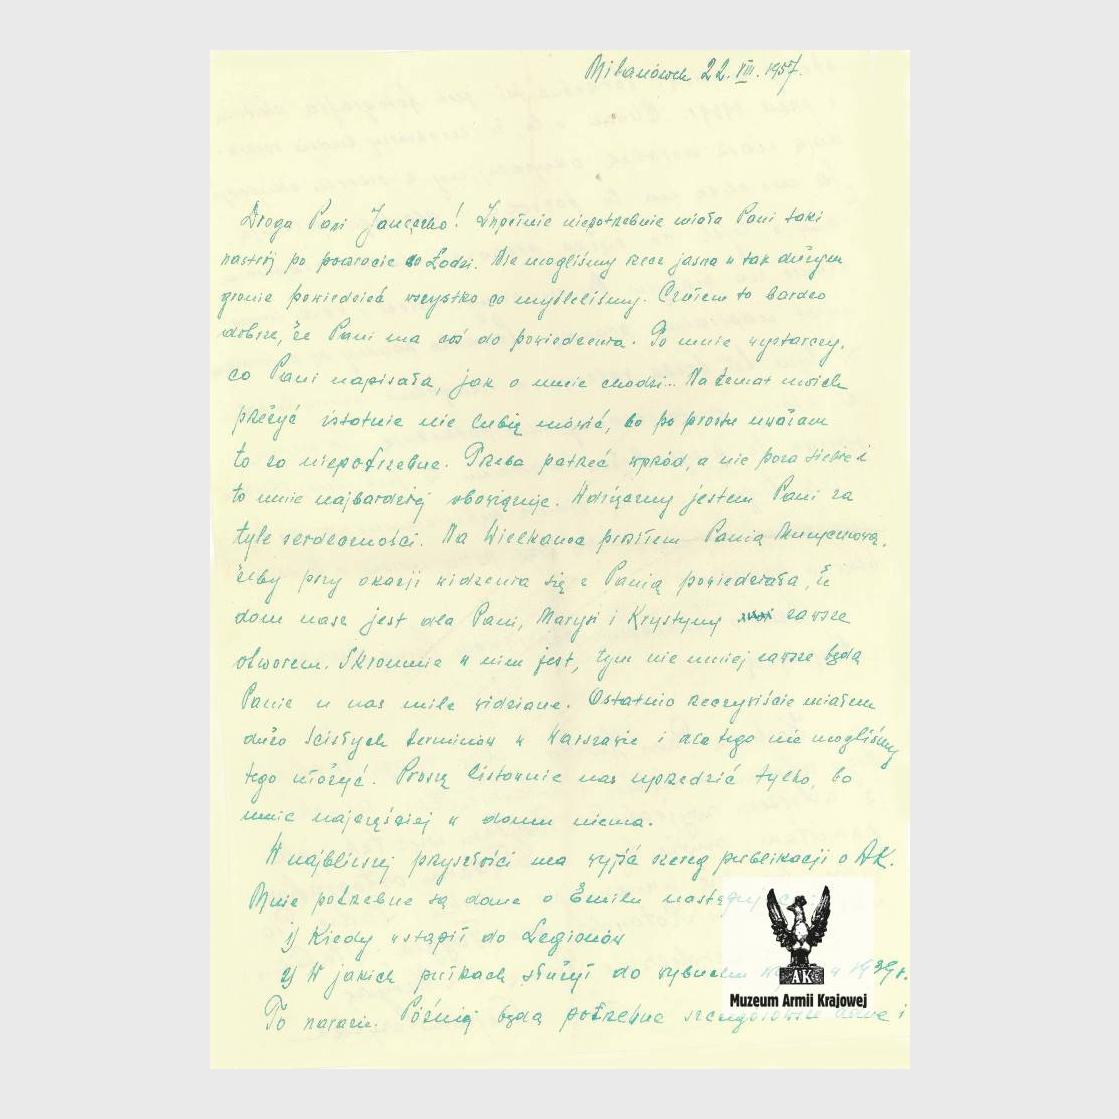 Milanówek 22.VIII.1957.
Droga Pani Janeczko! Zupełnie niepotrzebnie miała Pani taki
nastrój po powrocie do Łodzi. Nie mogliśmy rzecz jasna w tak dużym
gronie powiedzieć wszystko co myśleliśmy. Czułem to bardzo
dobrze, że Pani ma coś do powiedzenia. To mnie wystarczy,
co Pani napisała, jak o mnie chodzi.. Na temat moich
przeżyć istotnie nie lubię mówić, bo po prostu uważam
to za niepotrzebne. Trzeba patrzeć wprzód, a nie poza siebie i
to mnie najbardziej obowiązuje. Wdzięczny jestem Pani za
tyle serdeczności. Na Wielkanoc prosiłem Panią
żeby przy okazji widzenia się z Panią powiedziała, że
dom nasz jest dla Pani, Marysi i Krystyny zawsze
otworem. Skromnie w nim jest, tym nie mniej zawsze będą
Panie u nas mile widziane. Ostatnio rzeczywiście miałem
dużo ścisłych terminów w Warszawie i dlatego nie mogliśmy
tego złożyć. Proszę listownie nas uprzedzić tylko, bo
mnie najczęściej w domu niema.
W najbliższej przyszłości ma wyjść szereg publikacji o AK.
Mnie potrzebne są dane o Emilu
1) Kiedy wstąpił do Legionów
2) W jakich pułkach służył do wybuchu w 1939r.
To narazie. Później będą potrzebne szczegółowsze dane i
AK
Muzeum Armii Krajowej